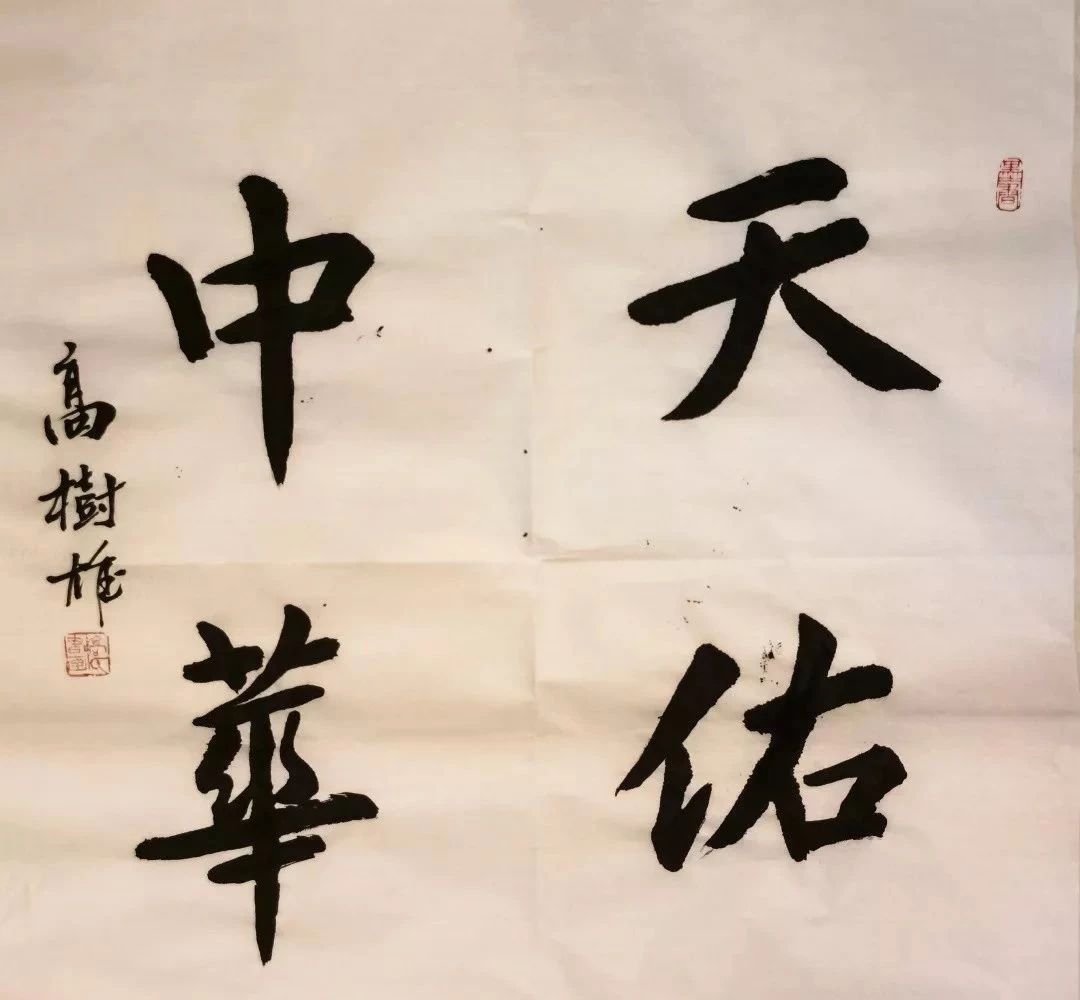 天佑
中華
高樹雄